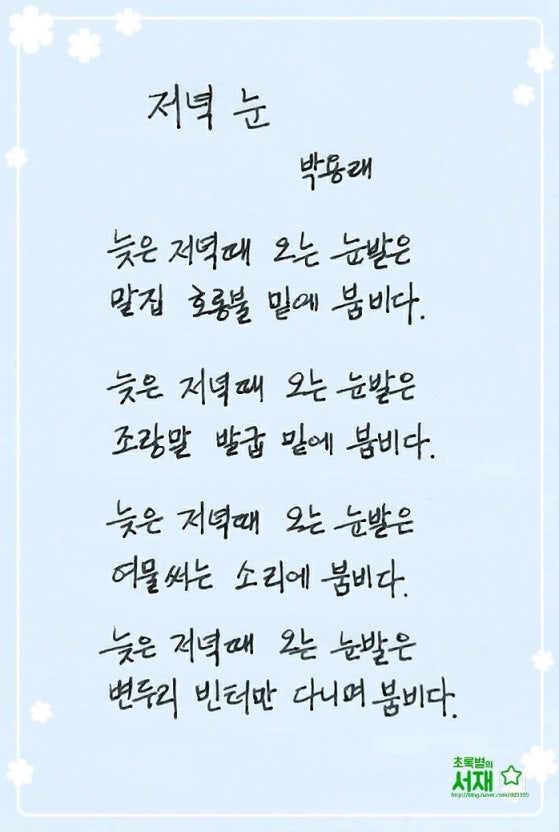 저녁 눈
박용래
늦은 저녁때 오는 눈발은
말집 호롱불 밑에 붐비다.
늦은 저녁때 오는 눈발은
조랑말 발굽 밑에 붐비다.
늦은 저녁때 오는 눈발은
여물써는 소리에 붐비다.
늦은 저녁때 오는 눈발은
변두리 빈터만 다니며 붐비다.
초록별의
서재